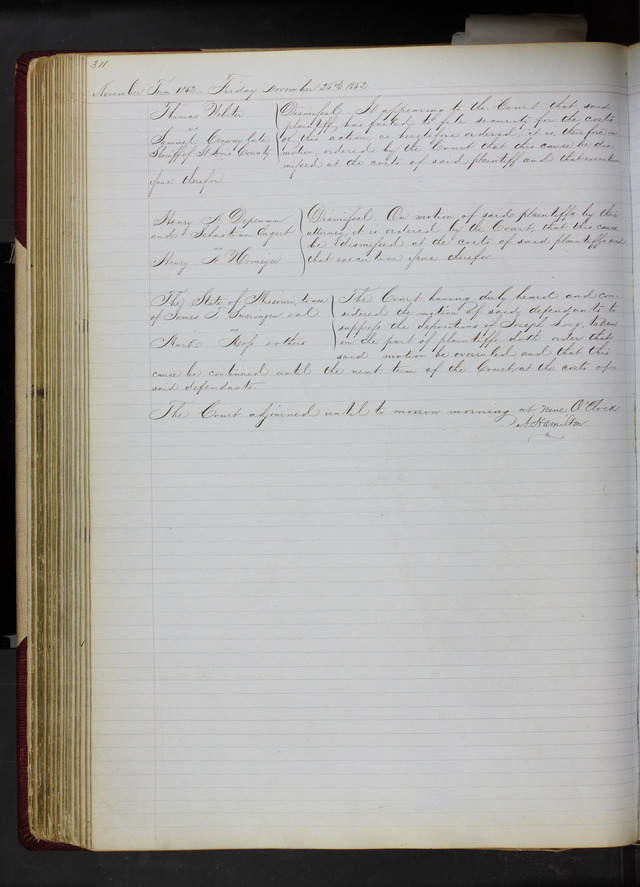 311
November Term 1852 Friday November 26th 1852
Thomas Webster
vs
Samuel Conway late
Sheriff of St Louis County
Dismissal. It appearing to the Court that said
plaintiff has failed to file security for the costs
of this action as heretofore ordered, it is therefore on
motion, ordered by the Court that this cause be dis-
missed at the costs of said plaintiff and that execution
issue therefor
Henry
and Sebastian
vs
Henry
Dismissal. On motion of said plaintiffs by their
attorney, it is ordered by the Court, that this cause
be dismissed at the costs of said plaintiffs and
that execution issue therefor
The State of Missouri, to use
of James T. Swearingen et al
vs
Mark Ross & others
The Court having duly heard and con-
sidered the motion of said defendants to
suppress the depositions of Joseph Long, taken
on the part of plaintiffs doth order that
said motion be overruled and that this
cause be continued until the next term of the Court, at the costs of
said defendants.
The Court adjourned until to morrow morning at nine O'Clock
A. Hamilton